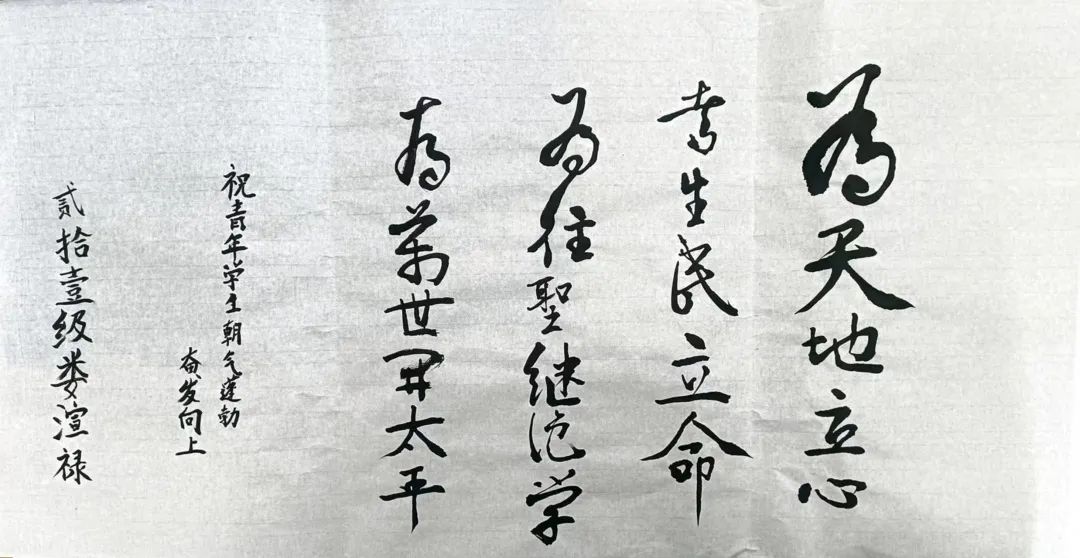 為天地立心
為生民立命
為往聖继绝学
為萬世開太平
祝青年学生朝气蓬勃
奋发向上
贰拾壹级娄渲禄